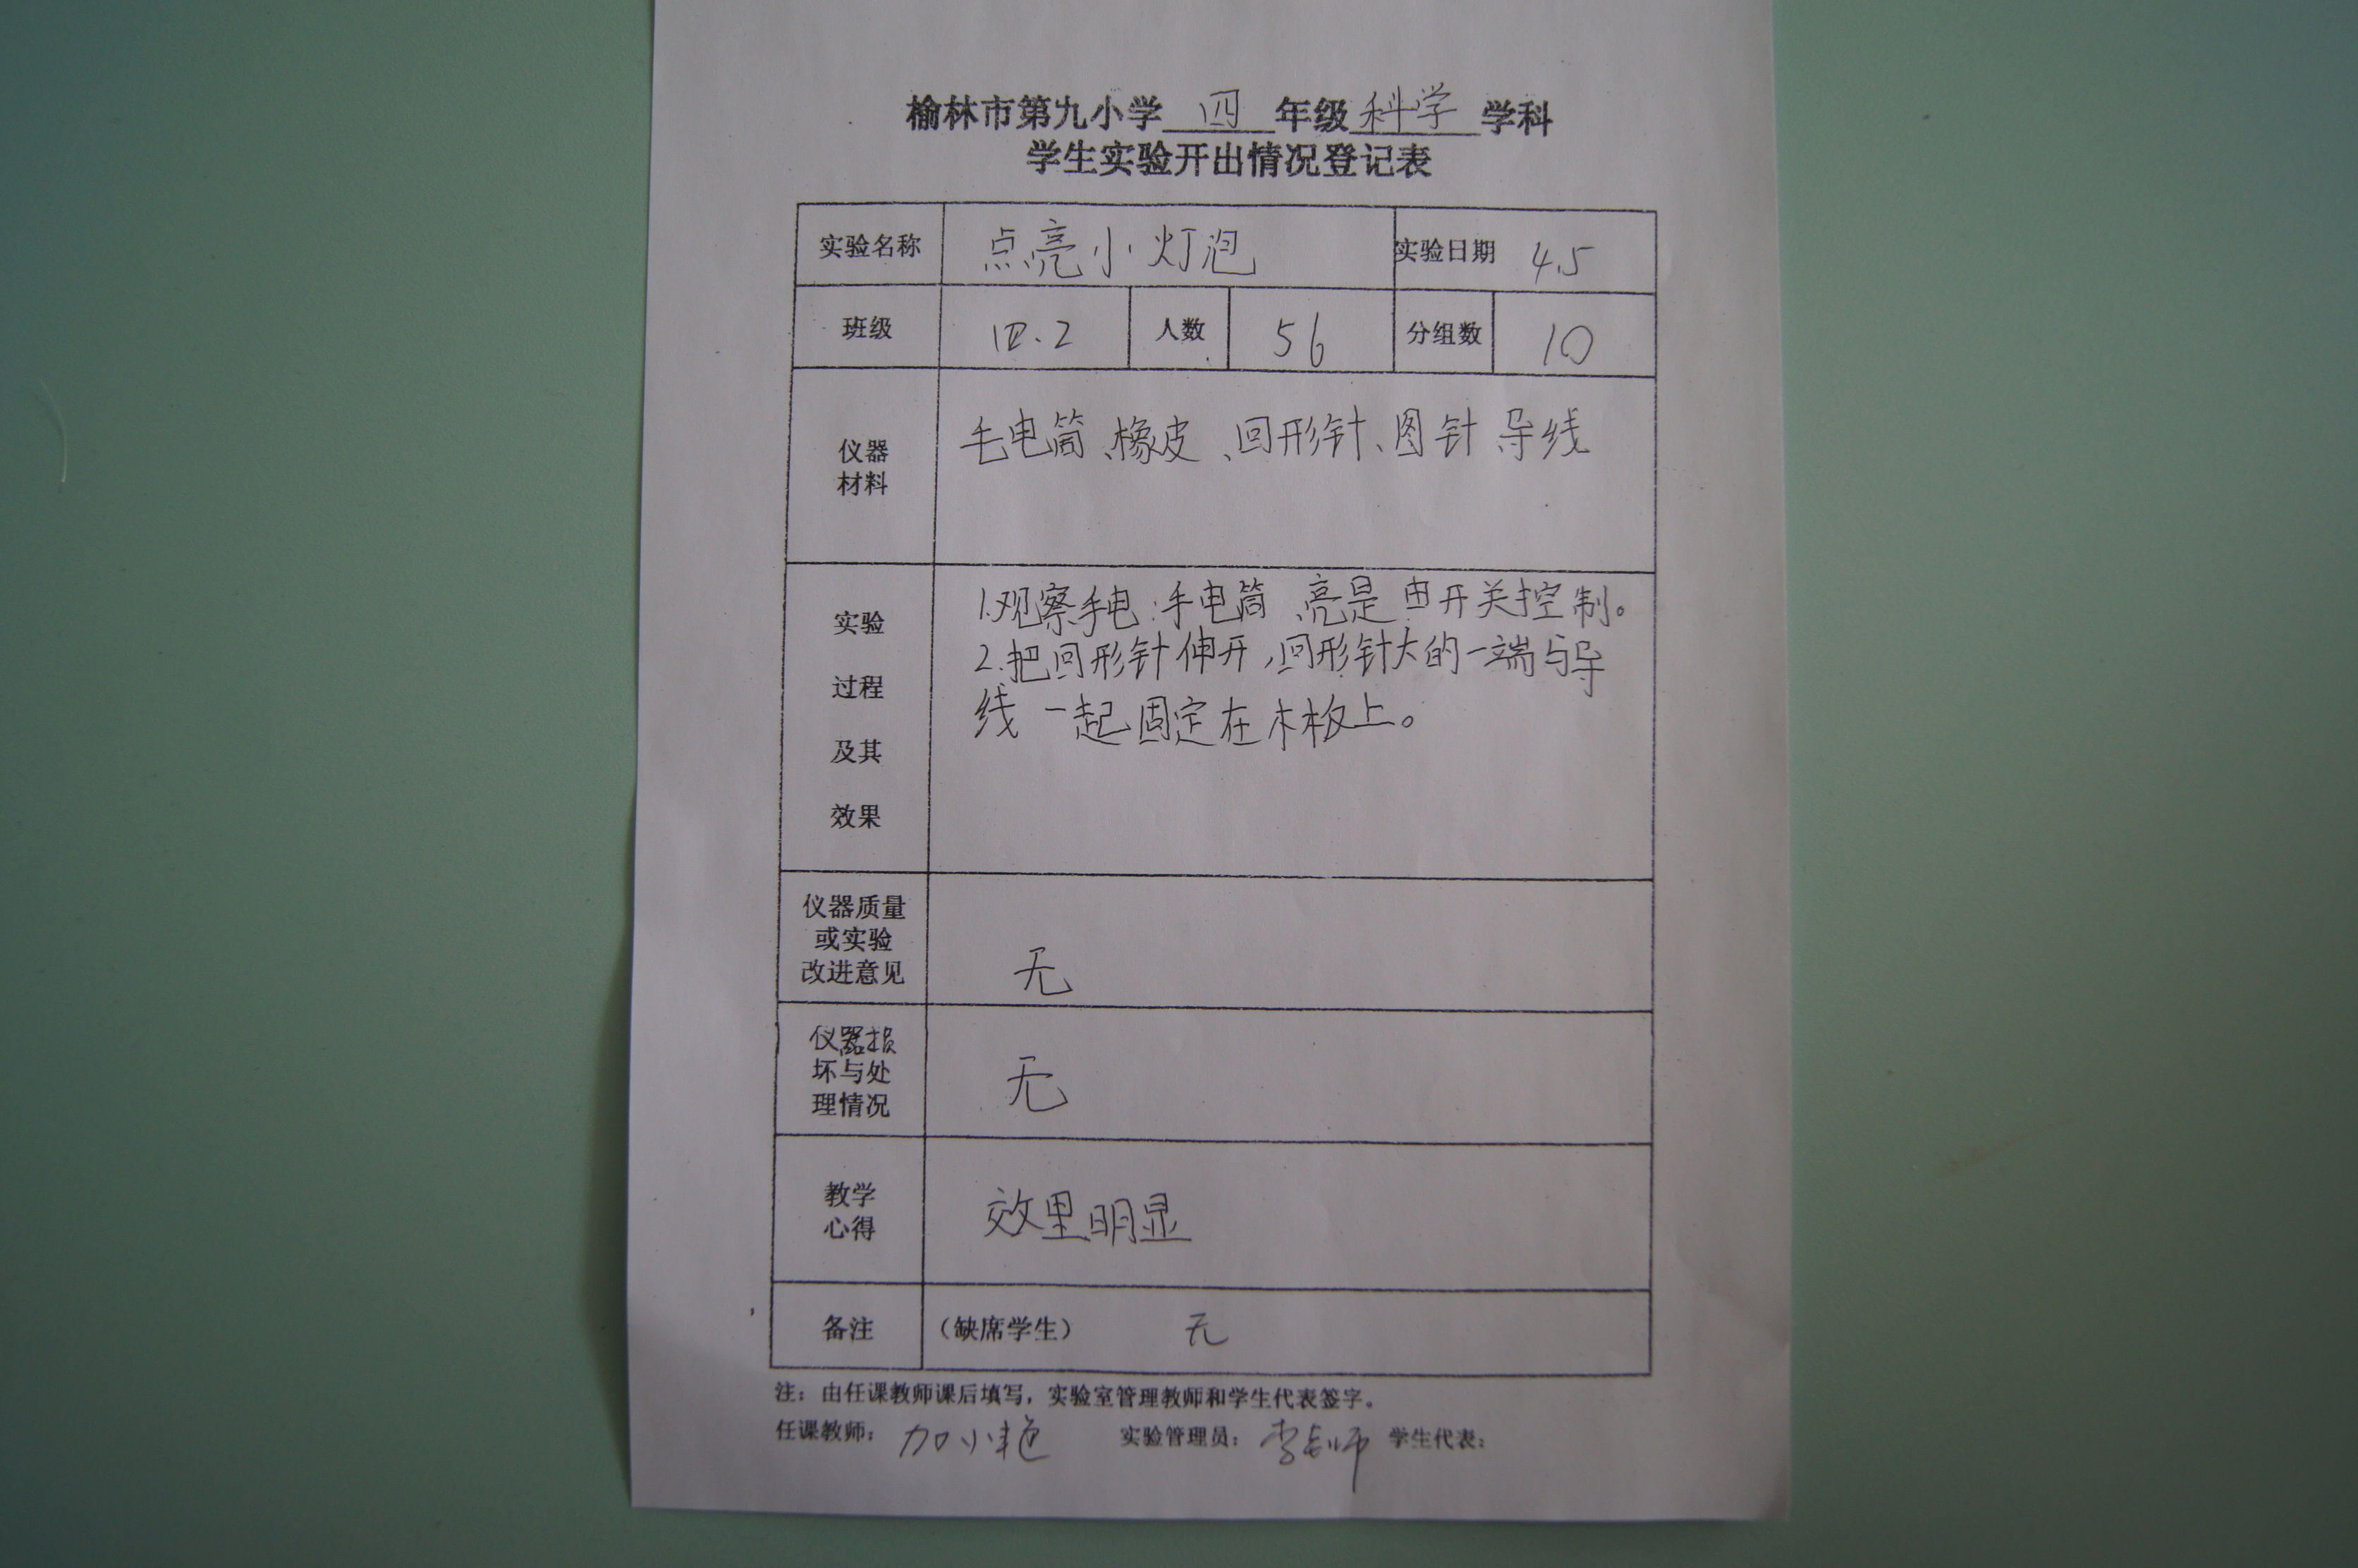 榆林市第九小学 四 年级 科学 学科
学生实验开出情况登记表
实验名称 点亮小灯泡 实验日期 4.5
班级 四.2 人数 56 分组数 10
仪器
材料
手电筒、橡皮、回形针、图针 导线
实验
过程
及其
效果
1.观察手电:手电筒、亮是由开关控制。
2.把回形针伸开,回形针大的一端与导
线一起固定在木板上。
仪器质量
或实验
改进意见
无
仪器损
坏与处
理情况
无
教学
心得
效果明显
备注 (缺席学生) 无
注:由任课教师课后填写,实验室管理教师和学生代表签字。
任课教师: 加小艳 实验管理员: 学生代表: